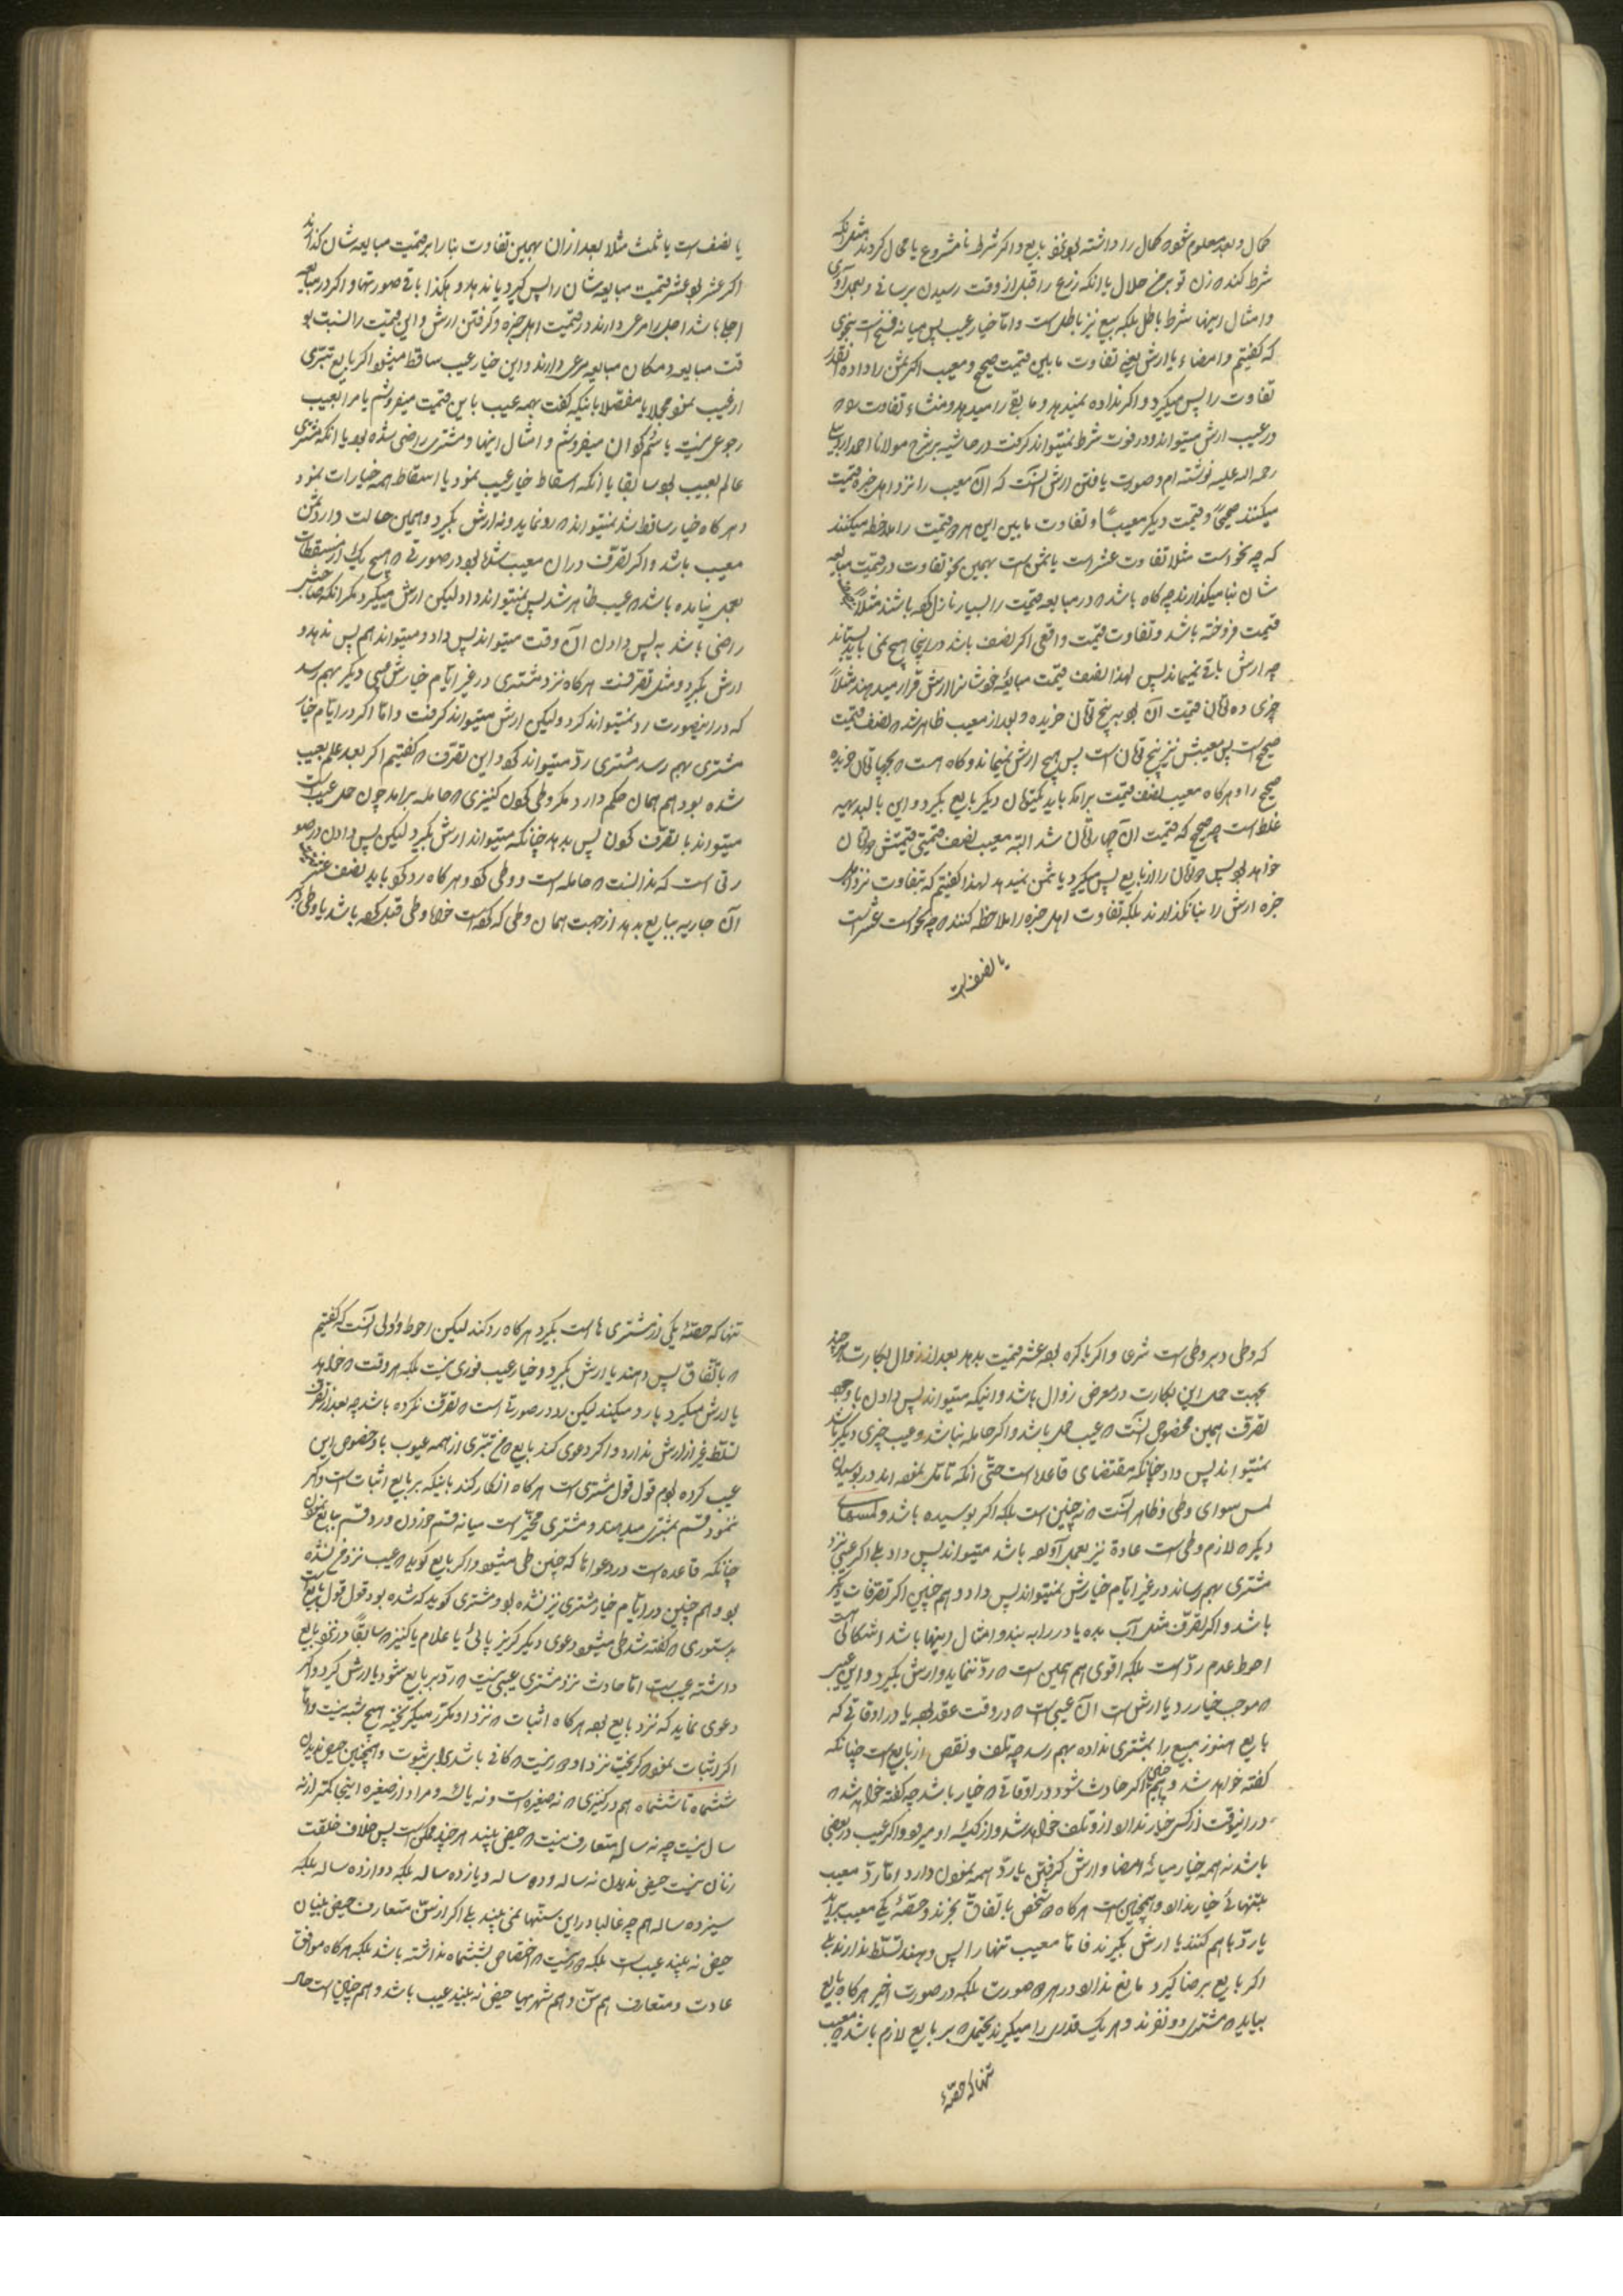 کمال و بعد معلوم شود که کمال را داشته بود بایع و اگر شرط نامشروع یا محال کردند مثل آنکه
شرط کند که زن تو بر من حلال یا آنکه زرع را قبل از وقت رسیدن برسانی و بعمل آوری
و امثال اینها شرط باطل بلکه بیع نیز باطل است و اما خیار عیب پس میانه فسخ است بنحوی
که گفتیم و امضاء با ارش یعنی تفاوت مابین قیمت صحیح و معیب اگر ثمن را داده آنقدر
تفاوت را پس میگیرد و اگر نداده نمیدهد و مابقی را میدهد و منشاء تفاوت
در عیب ارش میتواند و در فوت شرط نمیتواند گرفت در حاشیه بر شرح مولانا احمد اردبیلی
رحمه الله علیه نوشته ام و صورت یافتن ارش آنست که آن معیب را نزد اهل خبره قیمت
میکنند صحیحاً و قیمت دیگر معیباً و تفاوت مابین این هر دو قیمت را ملاحظه میکنند
که چه نحو است مثلا تفاوت عشر است یا ثمن است بهمین نحو تفاوت در قیمت مبایعه
شان بنا میگذارند چه گاه باشد که در مبایعه قیمت را بسیار نازل کرده باشند مثلاً
قیمت فروخته باشد و تفاوت قیمت واقعی اگر نصف باشد در اینجا هیچ نمی باید بستاند
چه ارش باقی نمیماند پس لهذا نصف قیمت مبایعه خودشان را ارش قرار میدهند مثلاً
چیزی ده تومان قیمت آن بود به پنج تومان خریده و بعد از معیب ظاهر شد که نصف قیمت
صحیح است پس معیبش نیز پنج تومان است پس هیچ ارش نمیماند و گاه است که بچهار تومان خریده
صحیح را و هرگاه معیب نصف قیمت برآمد باید یکتومان دیگر بایع بگیرد و این بالبدیهه
غلط است چه صحیح که قیمت آن چهار تومان شد البته معیب نصف قیمتی قیمتش دو تومان
خواهد بود پس دو تومان را از بایع پس میگیرد یا ثمن نمیدهد لهذا گفتیم که بتفاوت نزد اهل
خبره ارش را بنا نگذارند بلکه تفاوت اهل خبره را ملاحظه کنند که چه نحو است عشر است
یا نصف است
یا نصف است یا ثلث مثلا بعد از آن بهمین تفاوت بنا را بر قیمت مبایعه شان گذارند
اگر عشر بود عشر قیمت مبایعه شان را پس گیرد یا ندهد و هکذا باقی صورتها و اگر در مبایعه
اجل باشد اجل را مرعی دارند در قیمت اهل خبره و گرفتن ارش و این قیمت را نسبت بو
قت مبایعه و مکان مبایعه مرعی دارند و این خیار عیب ساقط میشود اگر بایع تبرّی
از عیب نمود مجملا یا مفصلا باینکه گفت بهمه عیب باین قیمت میفروشم یا مرا بعیب
رجوعی نیست یا سُم کوان میفروشم و امثال اینها و مشتری راضی شده بود یا آنکه مشتری
عالم بعیب بود سابقا یا آنکه اسقاط خیار عیب نمود یا اسقاط همه خیارات نمود
و هرگاه خیار ساقط شد نمیتواند که رد نماید و نه ارش بگیرد و همین حالت دارد ثمن
معیب باشد و اگر تصرف در آن معیب شده بود در صورتی که هیچ یک از مسقطات
بعمل نیامده باشد که عیب ظاهر شد پس نمیتواند داد و لیکن ارش میگیرد مگر آنکه صاحبش
راضی باشد به پس دادن آن وقت میتواند پس داد و میتواند هم پس ندهد و
ارش بگیرد و مثل تصرفست هرگاه نزد مشتری در غیر ایام خیارش عیبی دیگر بهم رسد
که در اینصورت رد نمیتواند کرد و لیکن ارش میتواند گرفت و اما اگر در ایام خیار
مشتری بهم رسد مشتری ردّ میتواند کرد و این تصرف که گفتیم اگر بعد علم بعیب
شده بود هم همان حکم دارد مگر وطی کردن کنیزی که حامله برآمد چون حمل عیب است
میتواند با تصرف کردن پس بدهد چنانکه میتواند ارش بگیرد لیکن پس دادن در صو
رتی است که ندانست که حامله است و وطی کرد و هرگاه رد کرد باید نصف عشر قیمت
آن جاریه ببایع بدهد از جهت همان وطی که کرده است خواه وطی قبل کرده باشد یا وطی دبر
که وطی دبر وطی است شرعا و اگر باکره بوده عشر قیمت بدهد بعد از زوال بکارت هر چند
بجهت حمل این بکارت در معرض زوال باشد و اینکه میتواند پس دادن با وجود
تصرف همین مخصوص آنست که عیب حمل باشد و اگر حامله نباشد و عیب چیزی دیگر باشد
نمیتواند پس داد چنانکه مقتضای قاعده است حتّی آنکه تامّل نموده اند در بوسیدن
لمس سوای وطی و ظاهر آنست که نه چنین است بلکه اگر بوسیده باشد و لمسهای
دیگر که لازم وطی است عادة نیز بعمل آورده باشد میتواند پس داد بلی اگر عیبی نزد
مشتری بهم رساند در غیر ایام خیارش نمیتواند پس داد و هم چنین اگر تصرفات دیگر
باشد و اگر تصرف مثل آب بده یا در را ببند و امثال اینها باشد اشکالی است
احوط عدم ردّ است بلکه اقوی هم همین است که ردّ ننماید و ارش بگیرد و این عیب
که موجب خیار رد یا ارش است آن عیبی است که در وقت عقد بوده یا در اوقاتی که
بایع هنوز مبیع را بمشتری نداده بهم رسد چه تلف و نقص از بایع است چنانکه
گفته خواهد شد و همچنین اگر حادث شود در اوقاتی که خیار باشد چه گفته خواهد شد که
در اینوقت از کسی خیار ندارد از و تلف خواهد شد و از کیسه او میرود و اگر عیب در بعضی
باشد نه همه خیار میانه امضا و ارش گرفتن یا ردّ همه نمودن دارد امّا ردّ معیب
بتنهائی خیار ندارد و همچنین است هرگاه دو شخص باتفاق بخرند و حصّه یکی معیب برآید
یا ردّ با هم کنند یا ارش بگیرند فاما معیب تنها را پس دهند تسلّط ندارند بلی
اگر بایع برضا گیرد مانع ندارد در هر دو صورت بلکه در صورت اخیر هرگاه بایع
بیاید که مشتری دو نفرند و هر یک قدری را میگیرند یحتمل که بر بایع لازم باشد که معیب
تنها که حصّهٔ
تنها که حصّهٔ یکی از مشتری ها است بگیرد هرگاه رد کند لیکن احوط و اولی آنست که گفتیم
که باتّفاق پس دهند یا ارش بگیرد و خیار عیب فوری نیست بلکه هر وقت که خواهد
یا ارش میگیرد یا رد میکند لیکن رد در صورتی است که تصرف نکرده باشد چه بعد از تصرف
تسلّط غیر از ارش ندارد و اگر دعوی کند بایع که من تبرّی از همه عیوب یا خصوص این
عیب کرده بودم قول قول مشتری است هرگاه انکار کند باینکه بر بایع اثبات است و اگر
ننمود قسم بمشتری میدهند و مشتری مخیّر است میانه قسم خوردن و رد قسم ببایع نمودن
چنانکه قاعده است در دعواها که چنین طی میشود و اگر بایع گوید که عیب نزد من نشده
بود و هم چنین در ایام خیار مشتری نیز نشده بود و مشتری گوید که شده بود قول قول بایع است
بدستوری که گفته شد طی میشود دعوی دیگر گریز پائی یا غلام یا کنیز که سابقاً در نزد بایع
داشته عیب است اما حادث نزد مشتری عیبی نیست که ردّ بر بایع شود یا ارش گیرد و اگر
دعوی نماید که نزد بایع بوده هرگاه اثبات که نزد او مکرر میگریخته هیچ شبهه نیست و اما
اگر اثبات نمود که گریخت نزد او دور نیست که کافی باشد برای ثبوت و همچنین حیض ندیدن
ششماه تا ششماه هم در کنیزی که نه صغیره است و نه یائسه و مراد از صغیره اینجا کمتر از نه
سال نیست چه نه ساله متعارف نیست که حیض بیند هر چند ممکن است پس خلاف خلقت
زنان نیست حیض ندیدن نه ساله و ده ساله و یازده ساله بلکه دوازده ساله بلکه
سیزده ساله هم چه غالبا در این سنّها نمی بیند بلی اگر از سنّ متعارف حیض بینان
حیض نه بیند عیب است بلکه دور نیست که اختصاص بششماه نداشته باشد بلکه هرگاه موافق
عادت و متعارف هم سنّ و هم شهریها حیض نه بیند عیب باشد و هم چنین است حال